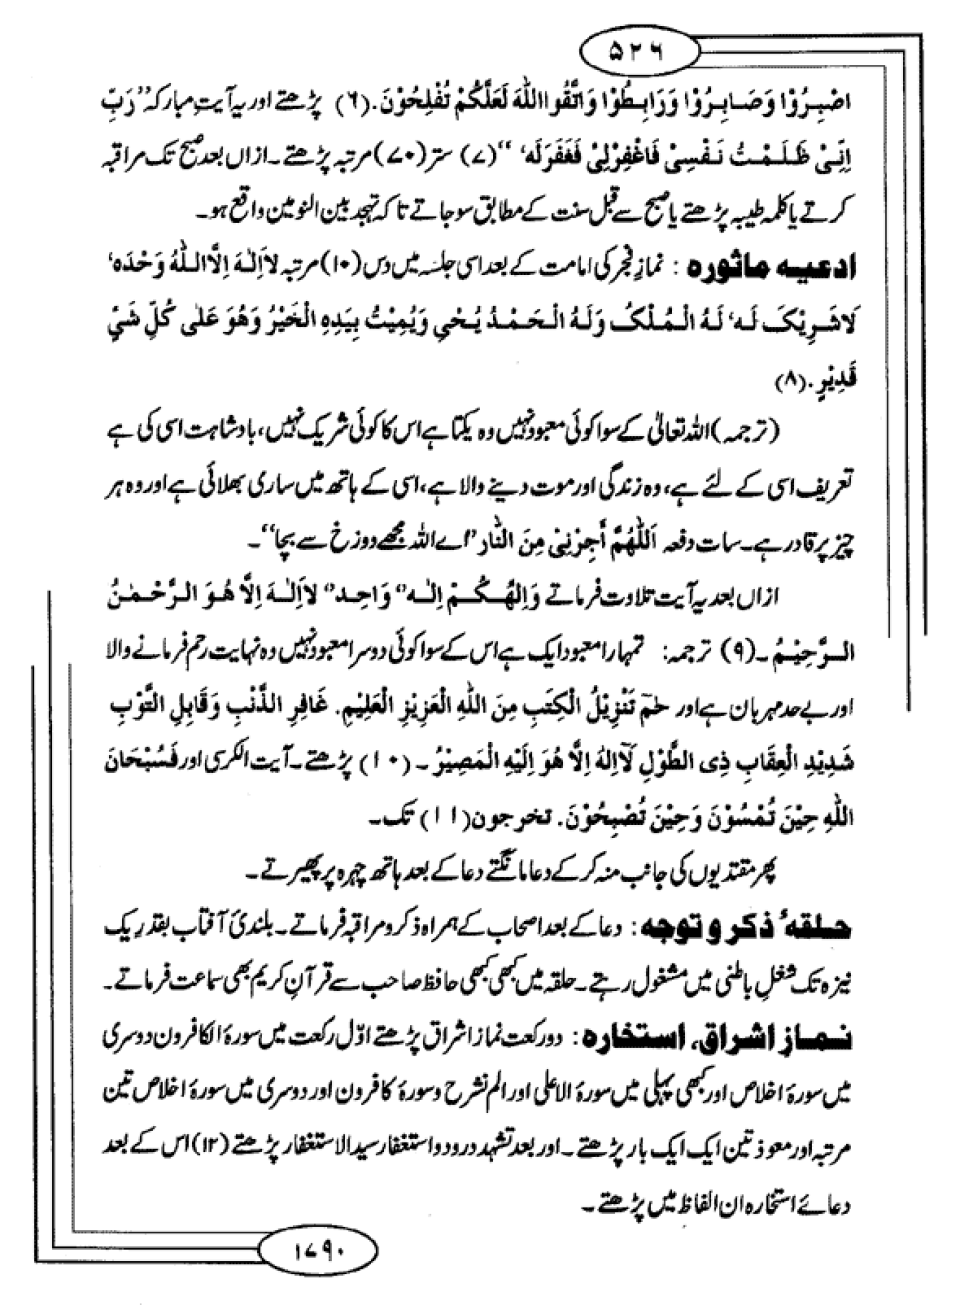 ۵۲۶
اصْبِرُوْا وَصَابِرُوْا وَرَابِطُوْا وَاتَّقُوا اللّٰهَ لَعَلَّكُمْ تُفْلِحُوْنَ.(۶) پڑھتے اور یہ آیتِ مبارکہ ”رَبِّ
اِنِّیْ ظَلَمْتُ نَفْسِیْ فَاغْفِرْلِیْ فَغَفَرَلَه‘ “(۷) ستر(۷۰) مرتبہ پڑھتے۔ ازاں بعد صبح تک مراقبہ
کرتے یا کلمہ طیبہ پڑھتے یا صبح سے قبل سنت کے مطابق سو جاتے تاکہ تہجد بین النومین واقع ہو۔
ادعیہ ماثورہ : نمازِ فجر کی امامت کے بعد اسی جلسہ میں دس (۱۰) مرتبہ لَا اِلٰهَ اِلَّا اللّٰهُ وَحْدَه‘
لَا شَرِيْكَ لَه‘ لَهُ الْمُلْكُ وَلَهُ الْحَمْدُ يُحْيِ وَيُمِيْتُ بِيَدِهِ الْخَيْرُ وَهُوَ عَلٰى كُلِّ شَيْ
قَدِيْرٍ.(۸)
(ترجمہ) اللہ تعالیٰ کے سوا کوئی معبود نہیں وہ یکتا ہے اس کا کوئی شریک نہیں، بادشاہت اسی کی ہے
تعریف اسی کے لئے ہے، وہ زندگی اور موت دینے والا ہے، اسی کے ہاتھ میں ساری بھلائی ہے اور وہ ہر
چیز پر قادر ہے۔ سات دفعہ اَللّٰهُمَّ أَجِرْنِيْ مِنَ النَّار ”اے اللہ مجھے دوزخ سے بچا“۔
ازاں بعد یہ آیت تلاوت فرماتے وَاِلٰهُكُمْ اِلٰه‘‘ وَاحِد‘‘ لَا اِلٰهَ اِلَّا هُوَ الرَّحْمٰنُ
الرَّحِيْمُ۔(۹) ترجمہ: تمہارا معبود ایک ہے اس کے سوا کوئی دوسرا معبود نہیں وہ نہایت رحم فرمانے والا
اور بے حد مہربان ہے اور حٰمٓ تَنْزِيْلُ الْكِتٰبِ مِنَ اللّٰهِ الْعَزِيْزِ الْعَلِيْمِ. غَافِرِ الذَّنْبِ وَقَابِلِ التَّوْبِ
شَدِيْدِ الْعِقَابِ ذِى الطَّوْلِ لَآاِلٰهَ اِلَّا هُوَ اِلَيْهِ الْمَصِيْرُ۔ (۱۰) پڑھتے۔ آیت الکرسی اور فَسُبْحَانَ
اللّٰهِ حِيْنَ تُمْسُوْنَ وَحِيْنَ تُصْبِحُوْنَ. تخرجون(۱۱) تک۔
پھر مقتدیوں کی جانب منہ کر کے دعا مانگتے دعا کے بعد ہاتھ چہرہ پر پھیرتے۔
حلقۂ ذکر و توجہ : دعا کے بعد اصحاب کے ہمراہ ذکر و مراقبہ فرماتے۔ بلندیٔ آفتاب بقدر یک
نیزہ تک شغلِ باطنی میں مشغول رہتے۔ حلقہ میں کبھی کبھی حافظ صاحب سے قرآنِ کریم بھی سماعت فرماتے۔
نمازِ اشراق، استخارہ : دو رکعت نماز اشراق پڑھتے اوّل رکعت میں سورۂ الکافرون دوسری
میں سورۂ اخلاص اور کبھی پہلی میں سورۂ الاعلی اور الم نشرح و سورۂ کافرون اور دوسری میں سورۂ اخلاص تین
مرتبہ اور معوذتین ایک ایک بار پڑھتے۔ اور بعد تشہد درود و استغفار سید الاستغفار پڑھتے (۱۲) اس کے بعد
دعائے استخارہ ان الفاظ میں پڑھتے۔
۱۷۹۰